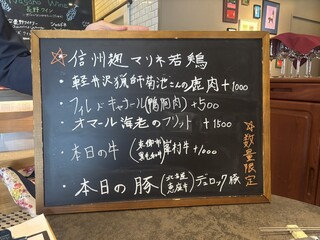 ☆信州麹マリネ若鶏
・軽井沢猟師菊池さんの鹿肉+1000
・フィレ・ド・キャナール(鴨胸肉)+500
・オマール海老のフリット +1500
・本日の牛(京都市 黒毛和牛)峯村牛+1000
・本日の豚(北海道 恵庭市)デュロック豚
数量限定